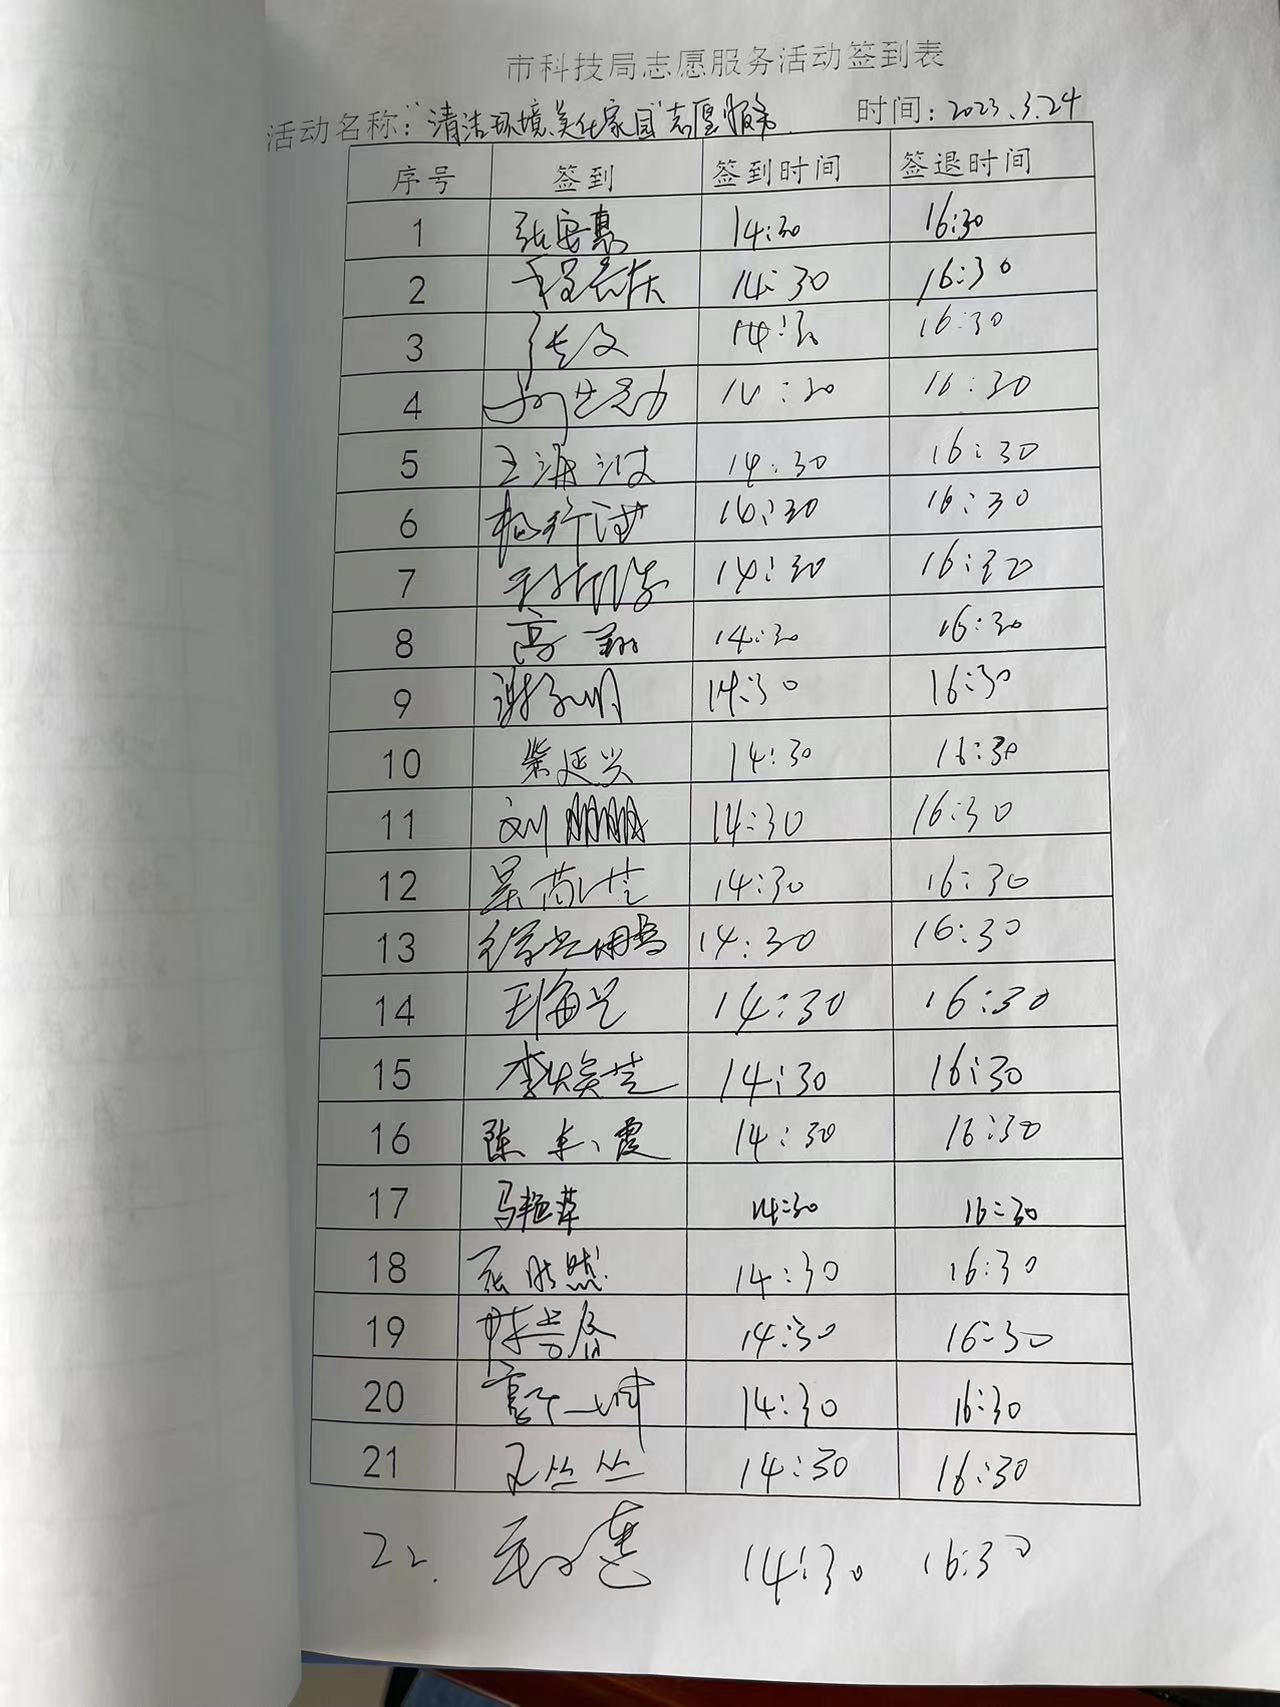 市科技局志愿服务活动签到表
活动名称：“清洁环境,美化家园”志愿服务 时间：2023.3.24
序号 签到 签到时间 签退时间
1 张安惠 14:30 16:30
2 14:30 16:30
3 张文 14:30 16:30
4 14:30 16:30
5 王海波 14:30 16:30
6 14:30 16:30
7 14:30 16:30
8 高翔 14:30 16:30
9 谢 明 14:30 16:30
10 柴延兴 14:30 16:30
11 刘鹏鹏 14:30 16:30
12 14:30 16:30
13 14:30 16:30
14 王海 14:30 16:30
15 李焕芝 14:30 16:30
16 陈 霞 14:30 16:30
17 马艳萍 14:30 16:30
18 张胜燃 14:30 16:30
19 14:30 16:30
20 14:30 16:30
21 王丛丛 14:30 16:30
22. 14:30 16:30